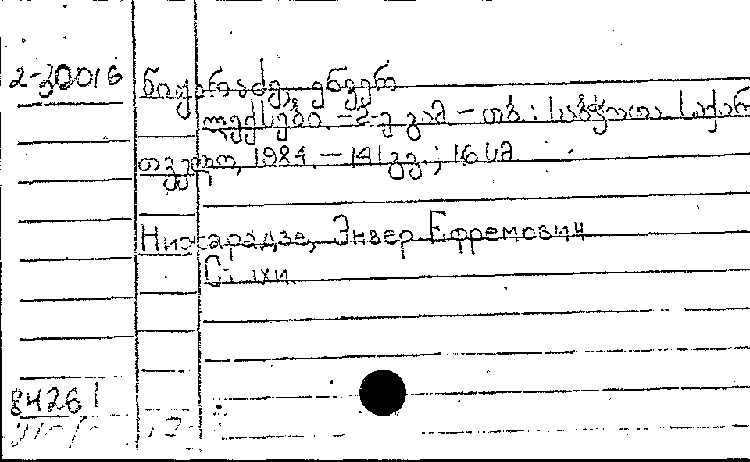 2-30016 ნიჟარაძე, ენვერ
ლექსები. – 2-ე გამ – თბ : საბჭოთა საქარ
თველო, 1984. – 141 გვ.; 16 სმ
Нижарадзе, Энвер Ефремович
Стихи.
84261